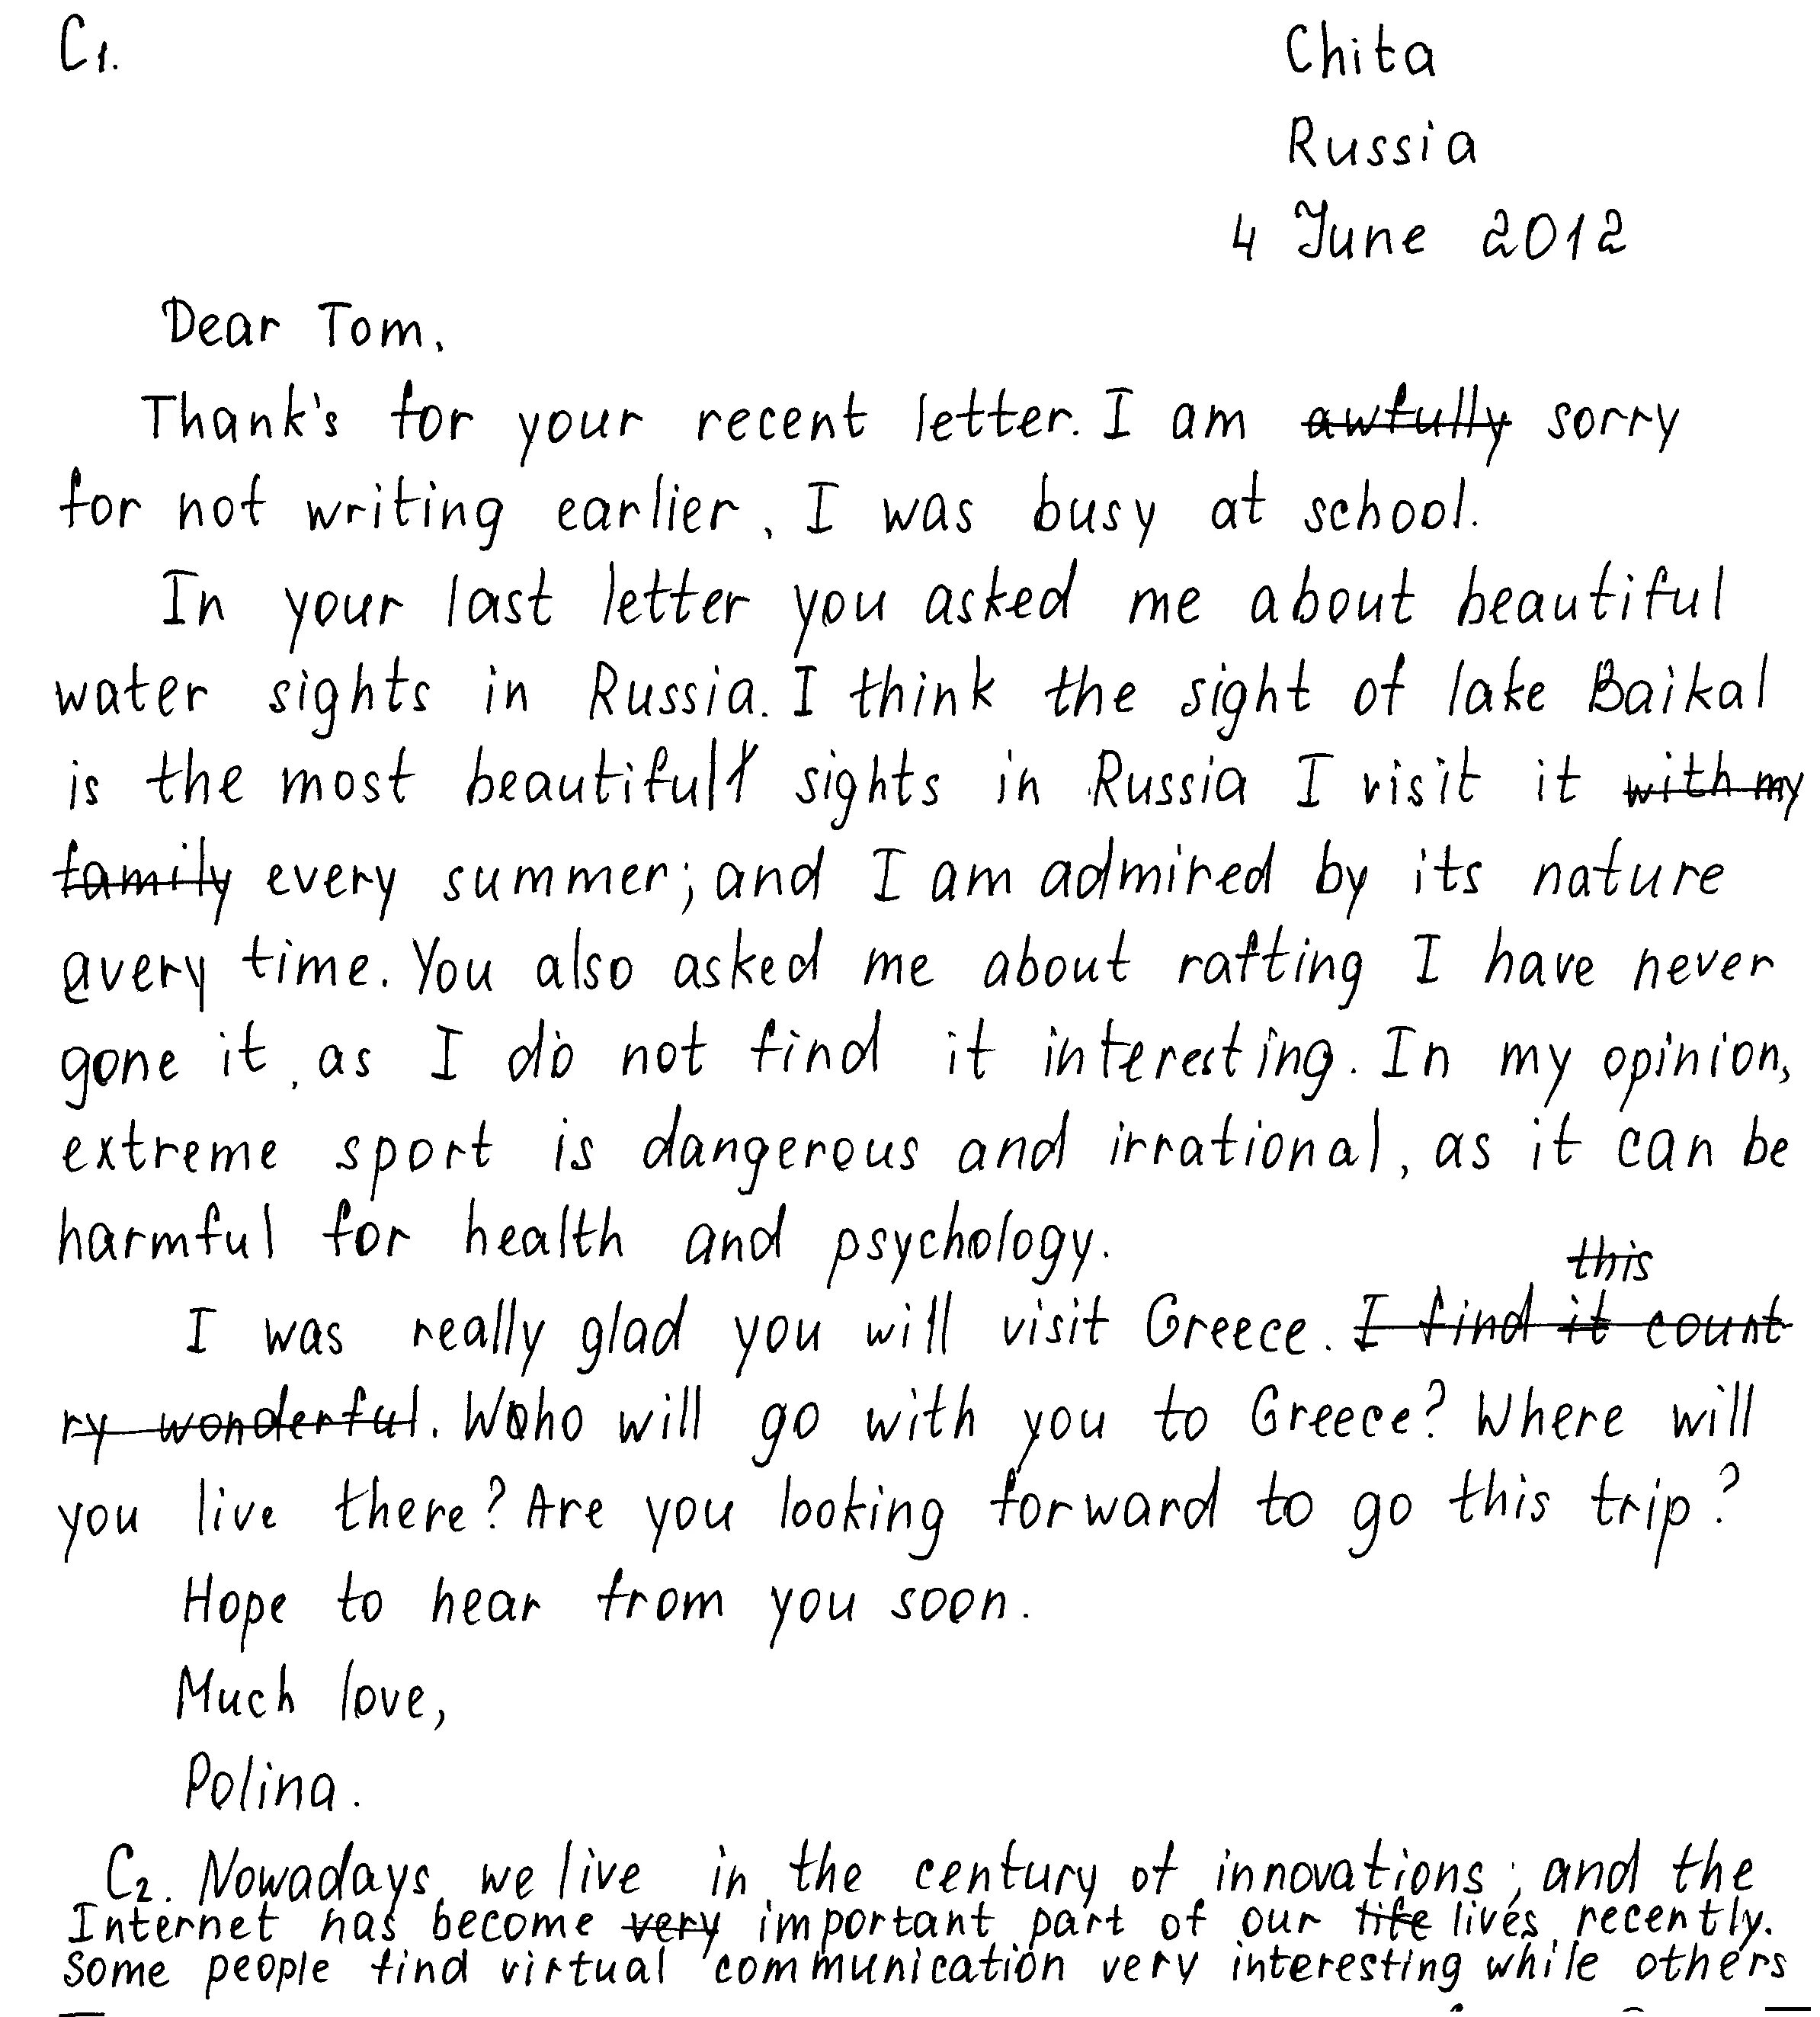 C1.
Chita
Russia
4 June 2012
Dear Tom,
Thank's for your recent letter. I am awfully sorry
for not writing earlier, I was busy at school.
In your last letter you asked me about beautiful
water sights in Russia. I think the sight of lake Baikal
is the most beautiful sights in Russia I visit it with my
family every summer; and I am admired by its nature
every time. You also asked me about rafting I have never
gone it, as I do not find it interesting. In my opinion,
extreme sport is dangerous and irrational, as it can be
harmful for health and psychology.
this
I was really glad you will visit Greece. I find it count
ry wonderful. Who will go with you to Greece? Where will
you live there? Are you looking forward to go this trip?
Hope to hear from you soon.
Much love,
Polina.
C2. Nowadays, we live in the century of innovations; and the
Internet has become very important part of our life lives recently.
Some people find virtual communication very interesting while others